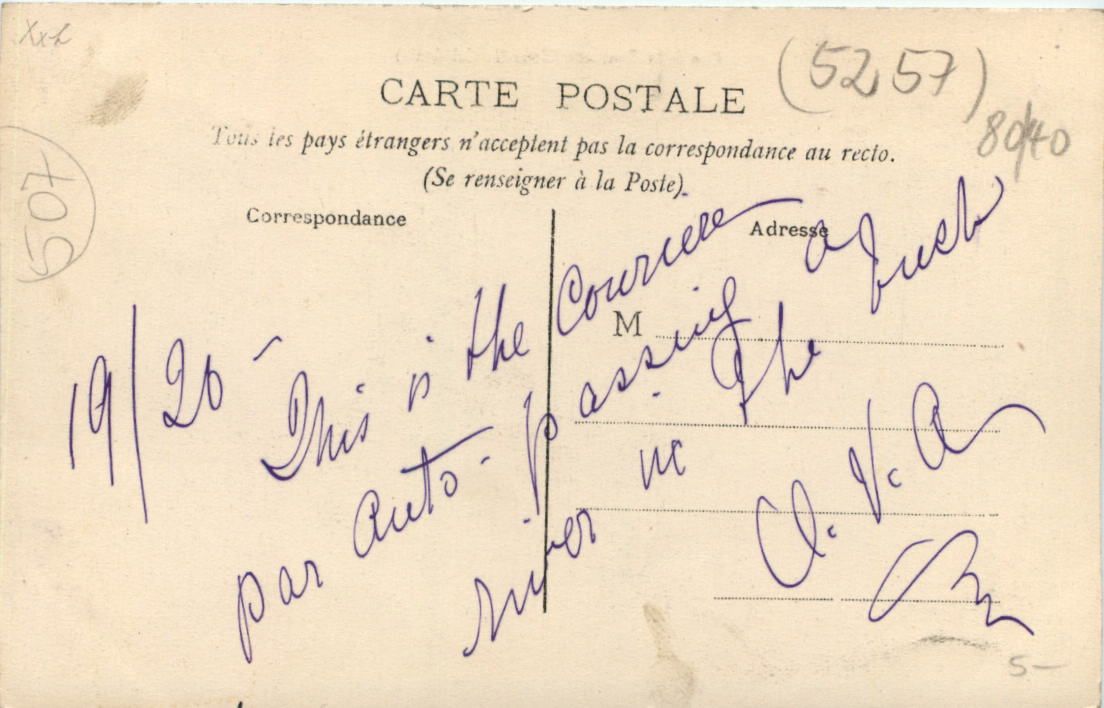 Xxh
(5257)
80/40
507
CARTE POSTALE
Tous les pays étrangers n'acceptent pas la correspondance au recto.
(Se renseigner à la Poste)
Correspondance
Adresse
M
19/20 - This is the Courriere
par auto - passing a
river in the bush
A. V. A.
5-